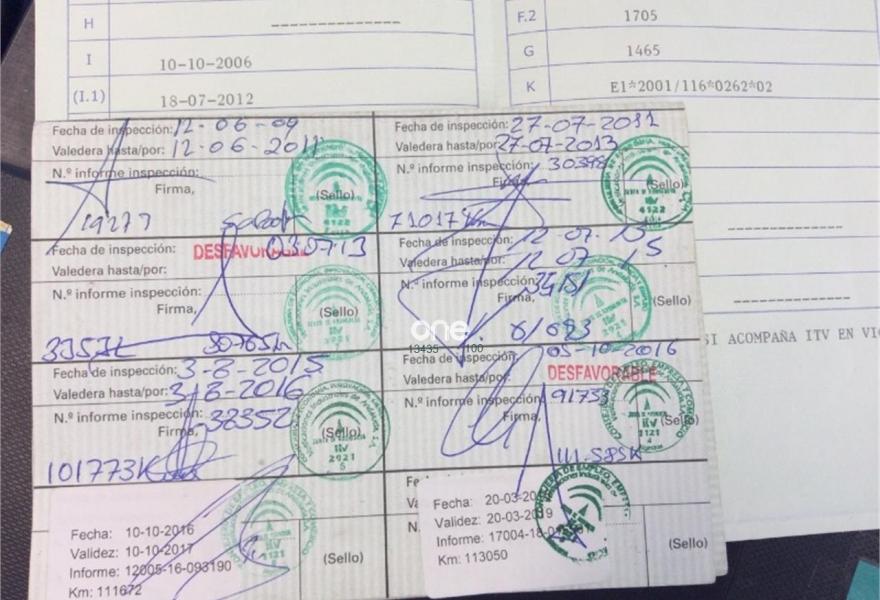 H --------------
F.2 1705
I 10-10-2006
G 1465
(I.1) 18-07-2012
K E1*2001/116*0262*02
Fecha de inspección: 12-06-09
Valedera hasta/por: 12-06-2011
N.º informe inspección:
Firma,
(Sello)
19277
Fecha de inspección: 27-07-2011
Valedera hasta/por: 27-07-2013
N.º informe inspección: 30398
Firma,
(Sello)
71017 Km
Fecha de inspección:
DESFAVORABLE
Valedera hasta/por:
N.º informe inspección:
Firma,
(Sello)
Fecha de inspección: 12 07 13
Valedera hasta/por: 12 07 15
N.º informe inspección:
Firma,
(Sello)
one
13435 100
SI ACOMPAÑA ITV EN
Fecha de inspección: 3-8-2015
Valedera hasta/por: 3-8-2016
N.º informe inspección: 38352
Firma,
(Sello)
101773K
Fecha de inspección: 05-10-2016
Valedera hasta/por: DESFAVORABLE
N.º informe inspección: 91753
Firma,
(Sello)
111.585K
Fecha: 10-10-2016
Validez: 10-10-2017
Informe: 12005-16-093190
Km: 111672
(Sello)
Fecha: 20-03-20
Validez: 20-03-2019
Informe: 17004-18-0
Km: 113050
(Sello)